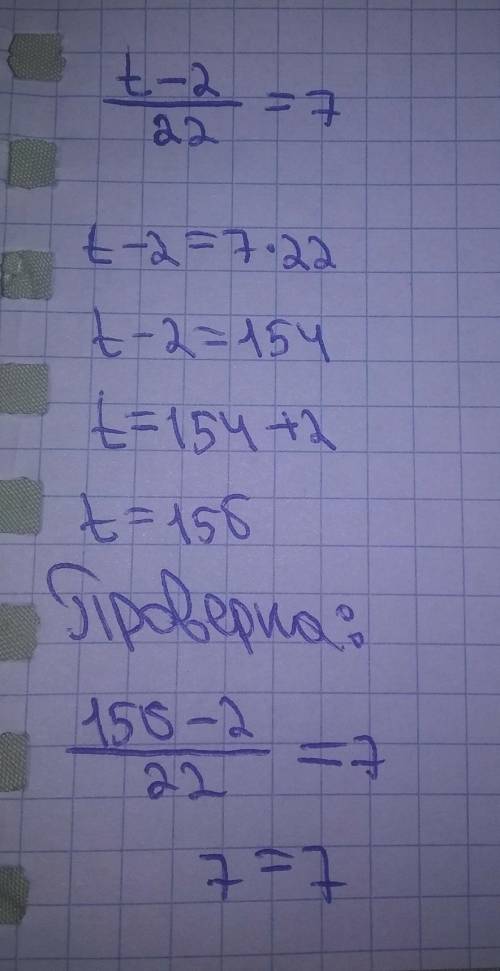 t-2/22=7
t-2=7·22
t-2=154
t=154+2
t=156
Проверка:
156-2/22=7
7=7